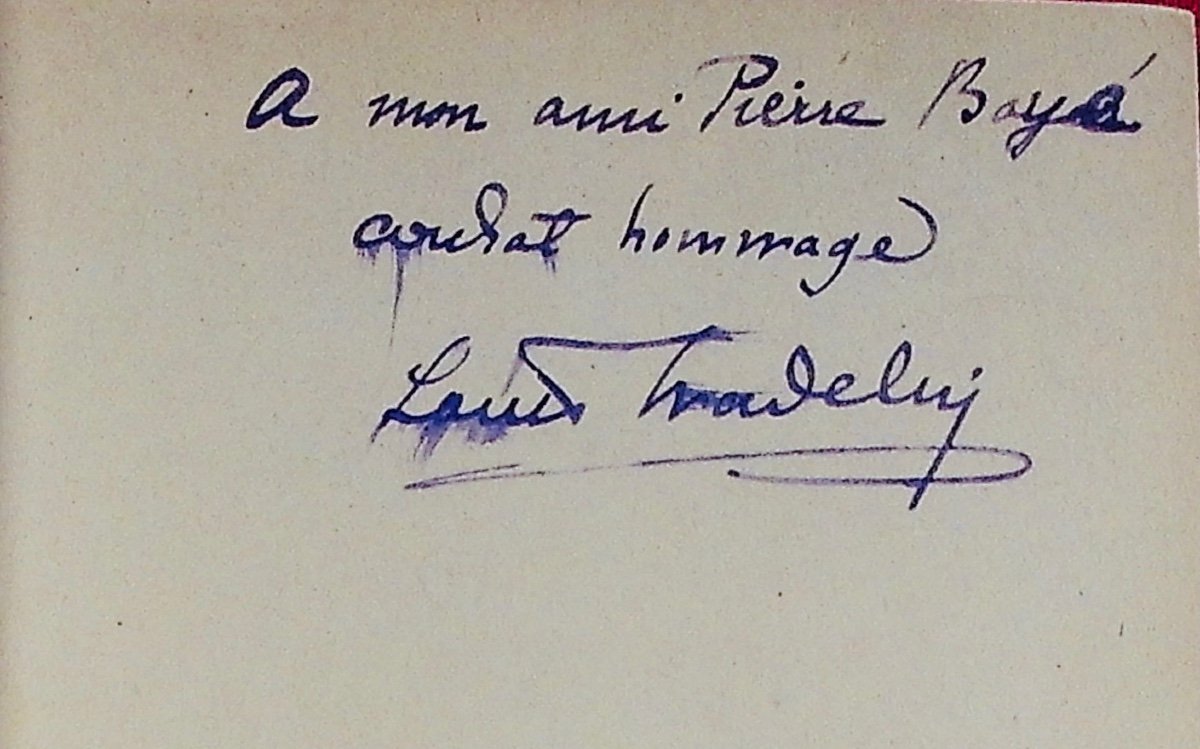 A mon ami Pierre Boyé
cordial hommage
Louis Madelin